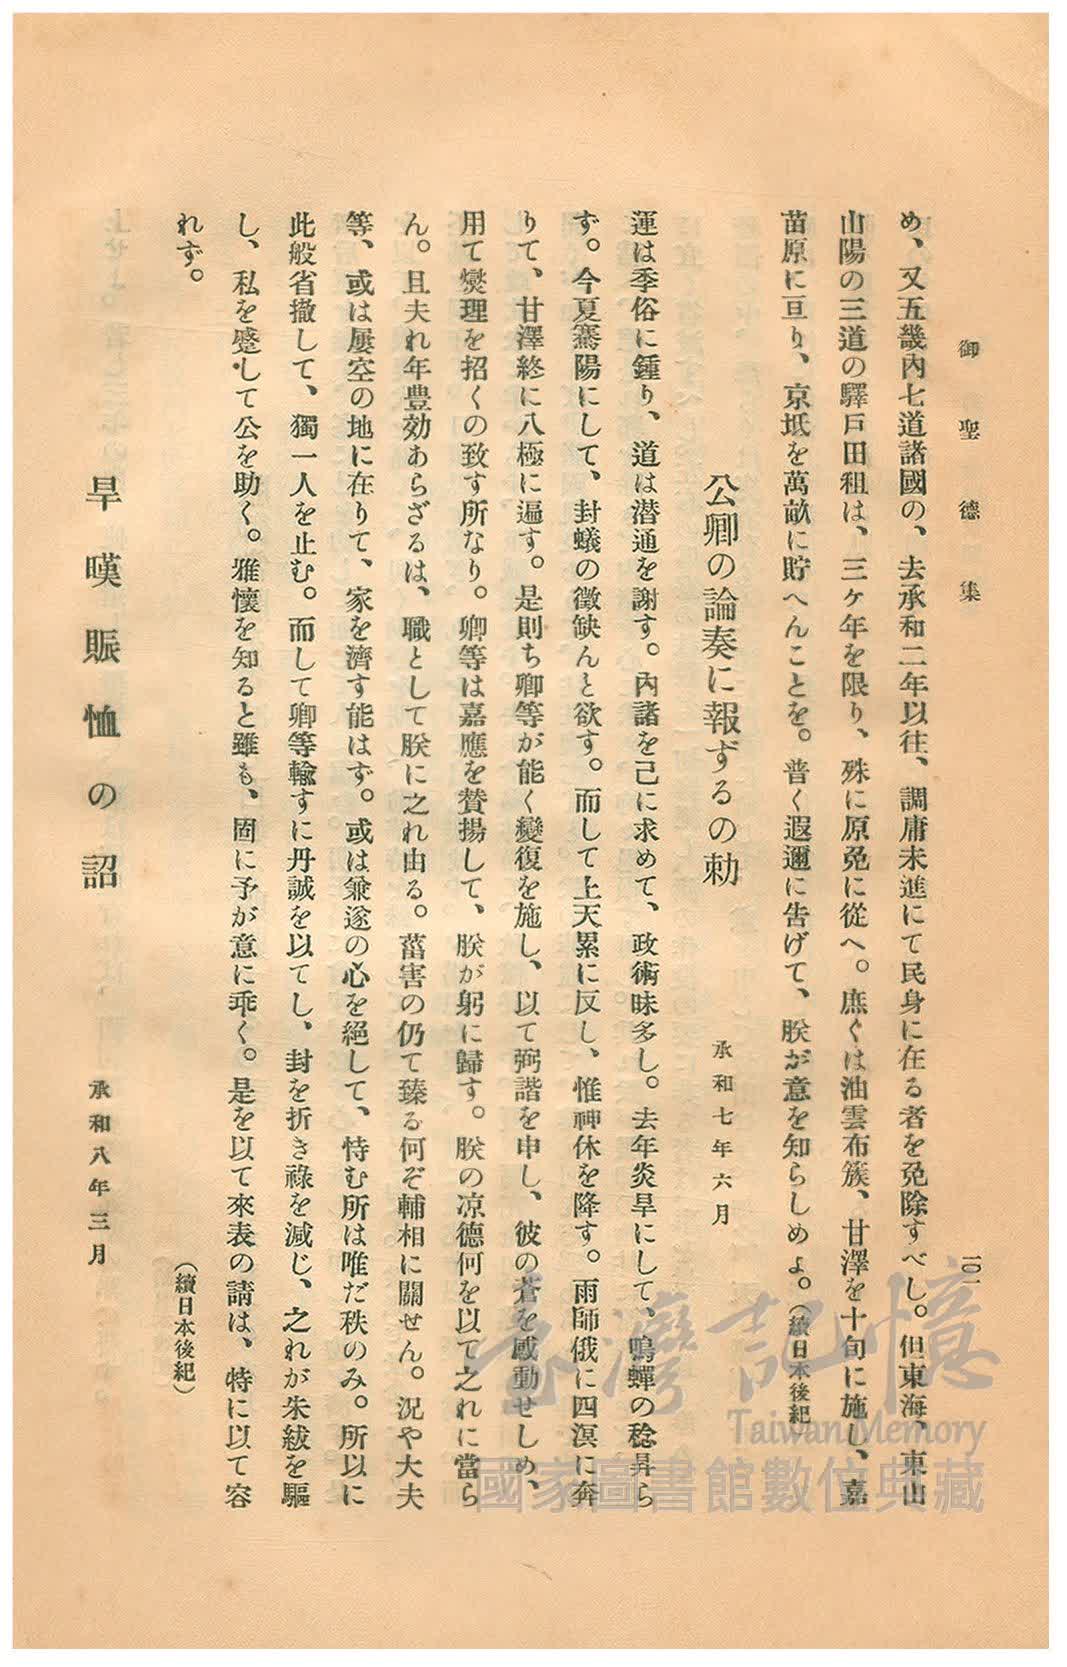 御聖德集
一〇一
め、又五畿內七道諸國の、去承和二年以往、調庸未進にて民身に在る者を免除すべし。但東海、東山
山陽の三道の驛戸田租は、三ケ年を限り、殊に原免に從へ。庶ぐは油雲布簇、甘澤を十旬に施し、嘉
苗原に亘り、京坻を萬畝に貯へんことを。普く遐邇に吿げて、朕が意を知らしめよ。(續日本後紀)
公卿の論奏に報ずるの勅
承和七年六月
運は季俗に鍾り、道は潜通を謝す。內諸を己に求めて、政術昧多し。去年炎旱にして、鳴蟬の稔昇ら
ず。今夏騫陽にして、封蟻の徵缺んと欲す。而して上天累に反し、惟神休を降す。雨師俄に四溟に奔
りて、甘澤終に八極に遍す。是則ち卿等が能く變復を施し、以て弼諧を申し、彼の蒼を感動せしめ、
用て燮理を招くの致す所なり。卿等は嘉應を賛揚して、朕が躬に歸す。朕の凉德何を以て之れに當ら
ん。且夫れ年豊効あらざるは、職として朕に之れ由る。菑害の仍て臻る何ぞ輔相に關せん。況や大夫
等、或は屢空の地に在りて、家を濟す能はず。或は兼遂の心を絕して、恃む所は唯だ秩のみ。所以に
此般省撤して、獨一人を止む。而して卿等輸すに丹誠を以てし、封を折き祿を減じ、之れが朱紱を驅
し、私を蹙して公を助く。雅懷を知ると雖も、固に予が意に乖く。是を以て來表の請は、特に以て容
れず。
(續日本後紀)
旱嘆賑恤の詔
承和八年三月
臺灣記憶
Taiwan Memory
國家圖書館數位典藏